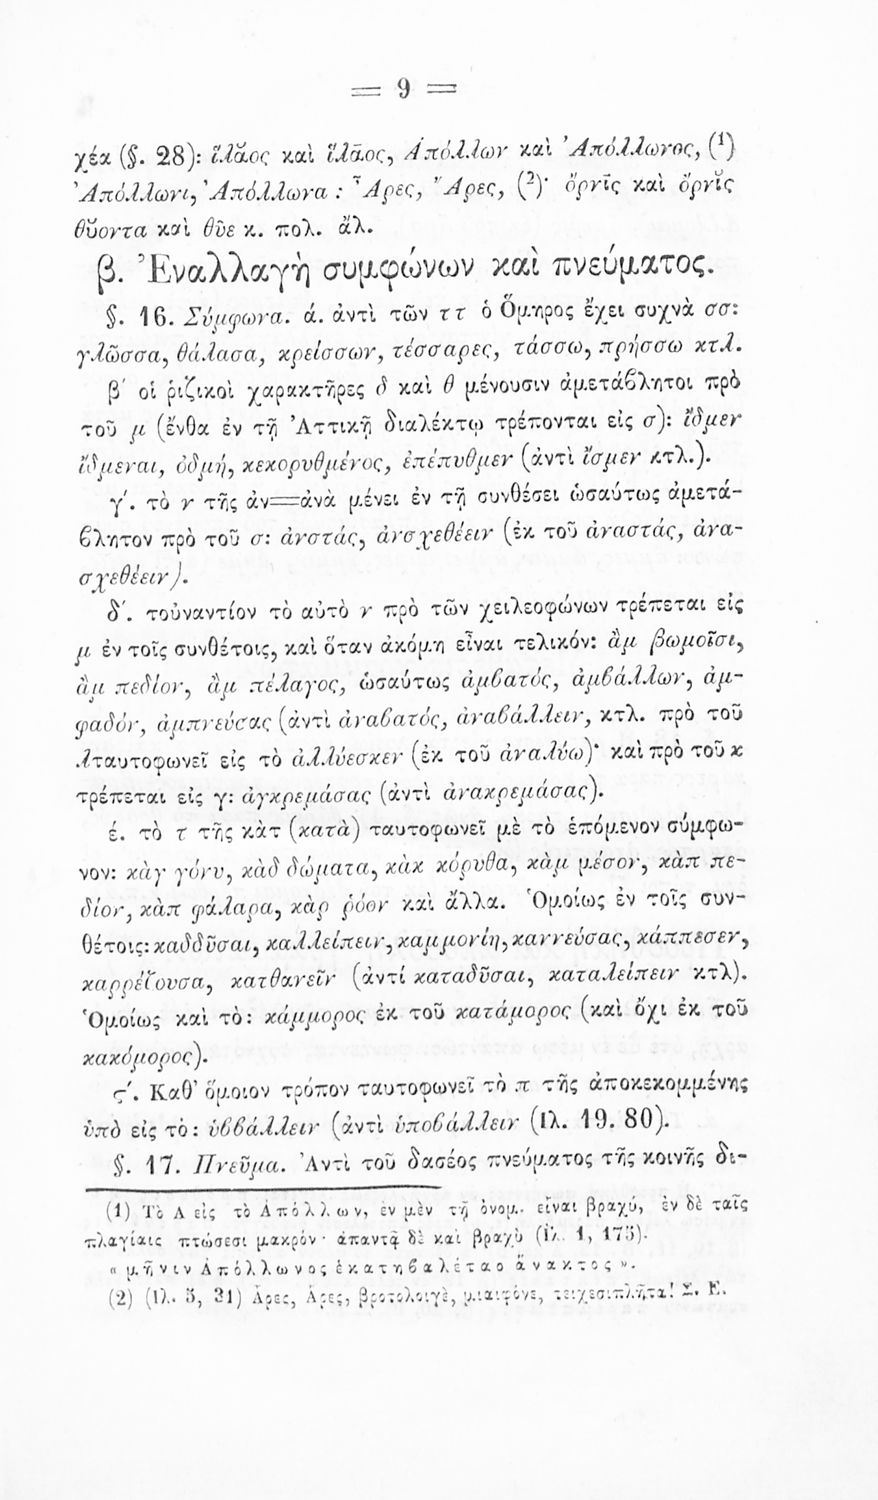 = 9 =
χέα (§. 28): ἵλᾰος καὶ ἵλᾱος, Ἀπόλλων καὶ Ἀπόλλωνος, (1)
Ἀπόλλωνι, Ἀπόλλωνα : Ἆρες, Ἄρες, (2)· ὄρνῑς καὶ ὄρνῐς
θῦοντα καὶ θῦε κ. πολ. ἄλ.
β. Ἐναλλαγὴ συμφώνων καὶ πνεύματος.
§. 16. Σύμφωνα. ά. ἀντὶ τῶν ττ ὁ Ὅμηρος ἔχει συχνὰ σσ:
γλῶσσα, θάλασα, κρείσσων, τέσσαρες, τάσσω, πρήσσω κτλ.
β΄ οἱ ῥιζικοὶ χαρακτῆρες δ καὶ θ μένουσιν ἀμετάβλητοι πρὸ
τοῦ μ (ἔνθα ἐν τῇ Ἀττικῇ διαλέκτῳ τρέπονται εἰς σ): ἴδμεν
ἴδμεναι, ὀδμή, κεκορυθμένος, ἐπέπυθμεν (ἀντὶ ἴσμεν κτλ.).
γ΄. τὸ ν τῆς ἀν=ἀνὰ μένει ἐν τῇ συνθέσει ὡσαύτως ἀμετά-
βλητον πρὸ τοῦ σ: ἀνστάς, ἀνσχεθέειν (ἐκ τοῦ ἀναστάς, ἀνα-
σχεθέειν).
δ΄. τοὐναντίον τὸ αὐτὸ ν πρὸ τῶν χειλεοφώνων τρέπεται εἰς
μ ἐν τοῖς συνθέτοις, καὶ ὅταν ἀκόμη εἶναι τελικόν: ἂμ βωμοῖσι,
ἂμ πεδίον, ἂμ πέλαγος, ὡσαύτως ἀμβατός, ἀμβάλλων, ἀμ-
φαδόν, ἀμπνεύσας (ἀντὶ ἀναβατός, ἀναβάλλειν, κτλ. πρὸ τοῦ
λταυτοφωνεῖ εἰς τὸ ἀλλύεσκεν (ἐκ τοῦ ἀναλύω)· καὶ πρὸ τοῦ κ
τρέπεται εἰς γ: ἀγκρεμάσας (ἀντὶ ἀνακρεμάσας).
έ. τὸ τ τῆς κὰτ (κατὰ) ταυτοφωνεῖ μὲ τὸ ἑπόμενον σύμφω-
νον: κὰγ γόνυ, κὰδ δώματα, κὰκ κόρυθα, κὰμ μέσον, κὰπ πε-
δίον, κὰπ φάλαρα, κὰρ ῥόον καὶ ἄλλα. Ὁμοίως ἐν τοῖς συν-
θέτοις: καδδῦσαι, καλλείπειν, καμμονίη, καννεύσας, κάππεσεν,
καρρέζουσα, κατθανεῖν (ἀντί καταδῦσαι, καταλείπειν κτλ).
Ὁμοίως καὶ τὸ: κάμμορος ἐκ τοῦ κατάμορος (καὶ ὄχι ἐκ τοῦ
κακόμορος).
ς΄. Καθ' ὅμοιον τρόπον ταυτοφωνεῖ τὸ π τῆς ἀποκεκομμένης
ὑπὸ εἰς τὸ: ὑββάλλειν (ἀντὶ ὑποβάλλειν (Ιλ. 19. 80).
§. 17. Πνεῦμα. Ἀντὶ τοῦ δασέος πνεύματος τῆς κοινῆς δι-
(1) Τὸ Α εἰς τὸ Ἀπόλλων, ἐν μὲν τῇ ὀνομ. εἶναι βραχύ, ἐν δὲ ταῖς
πλαγίαις πτώσεσι μακρόν· ἀπαντᾷ δὲ καὶ βραχὺ (Ἰλ. 1, 175).
« μῆνιν Ἀπόλλωνος ἑκατηβαλέταο ἄνακτος ».
(2) (Ἰλ. 5, 31) Ἆρες, Ἄρες, βροτολοιγὲ, μιαιφόνε, τειχεσιπλῆτα! Σ. Ε.